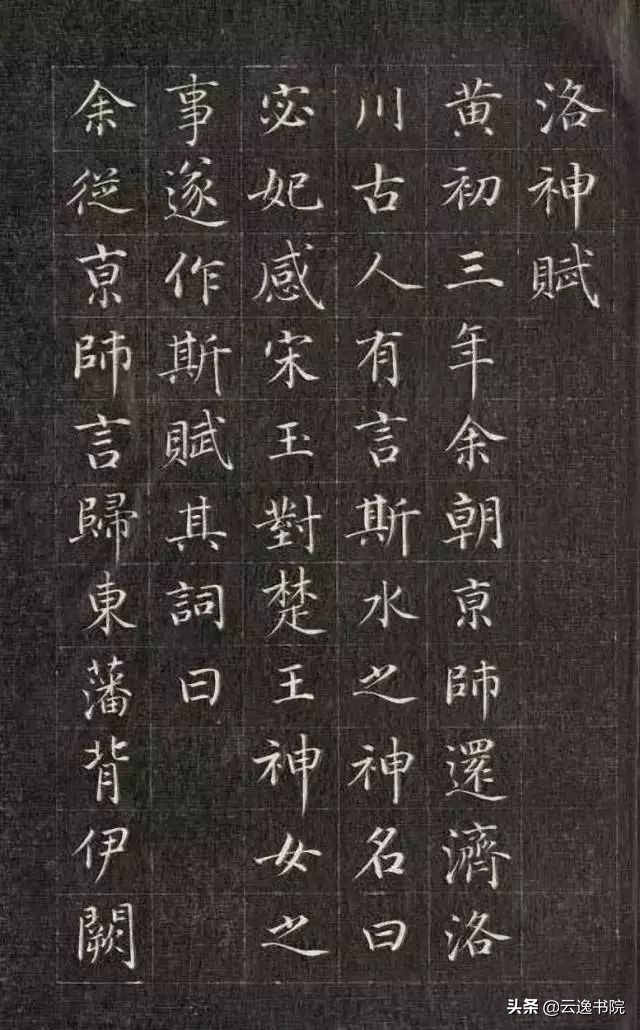 洛神賦
黃初三年余朝京師還濟洛
川古人有言斯水之神名曰
宓妃感宋玉對楚王神女之
事遂作斯賦其詞曰
余從京師言歸東藩背伊闕
头条 @云逸书院